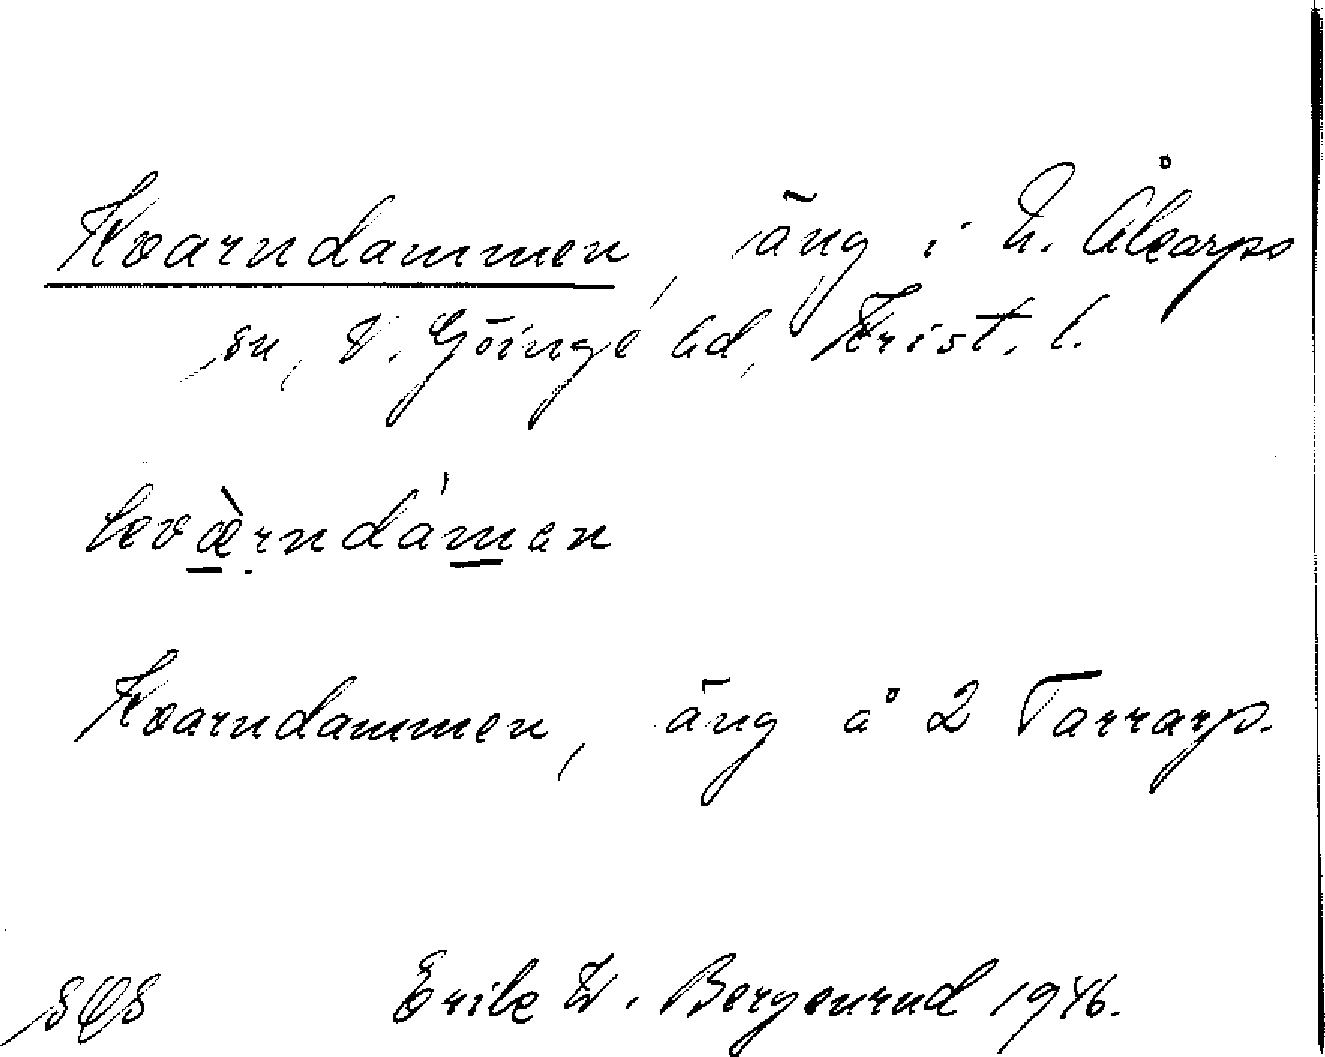 Kvarndammen, äng i N. Åkarps
sn, V. Göinge hd, Krist. l.
kvæ̀rndámen
Kvarndammen, äng å 2 Tararp.
SOS Erik W. Bergenrud 1946.